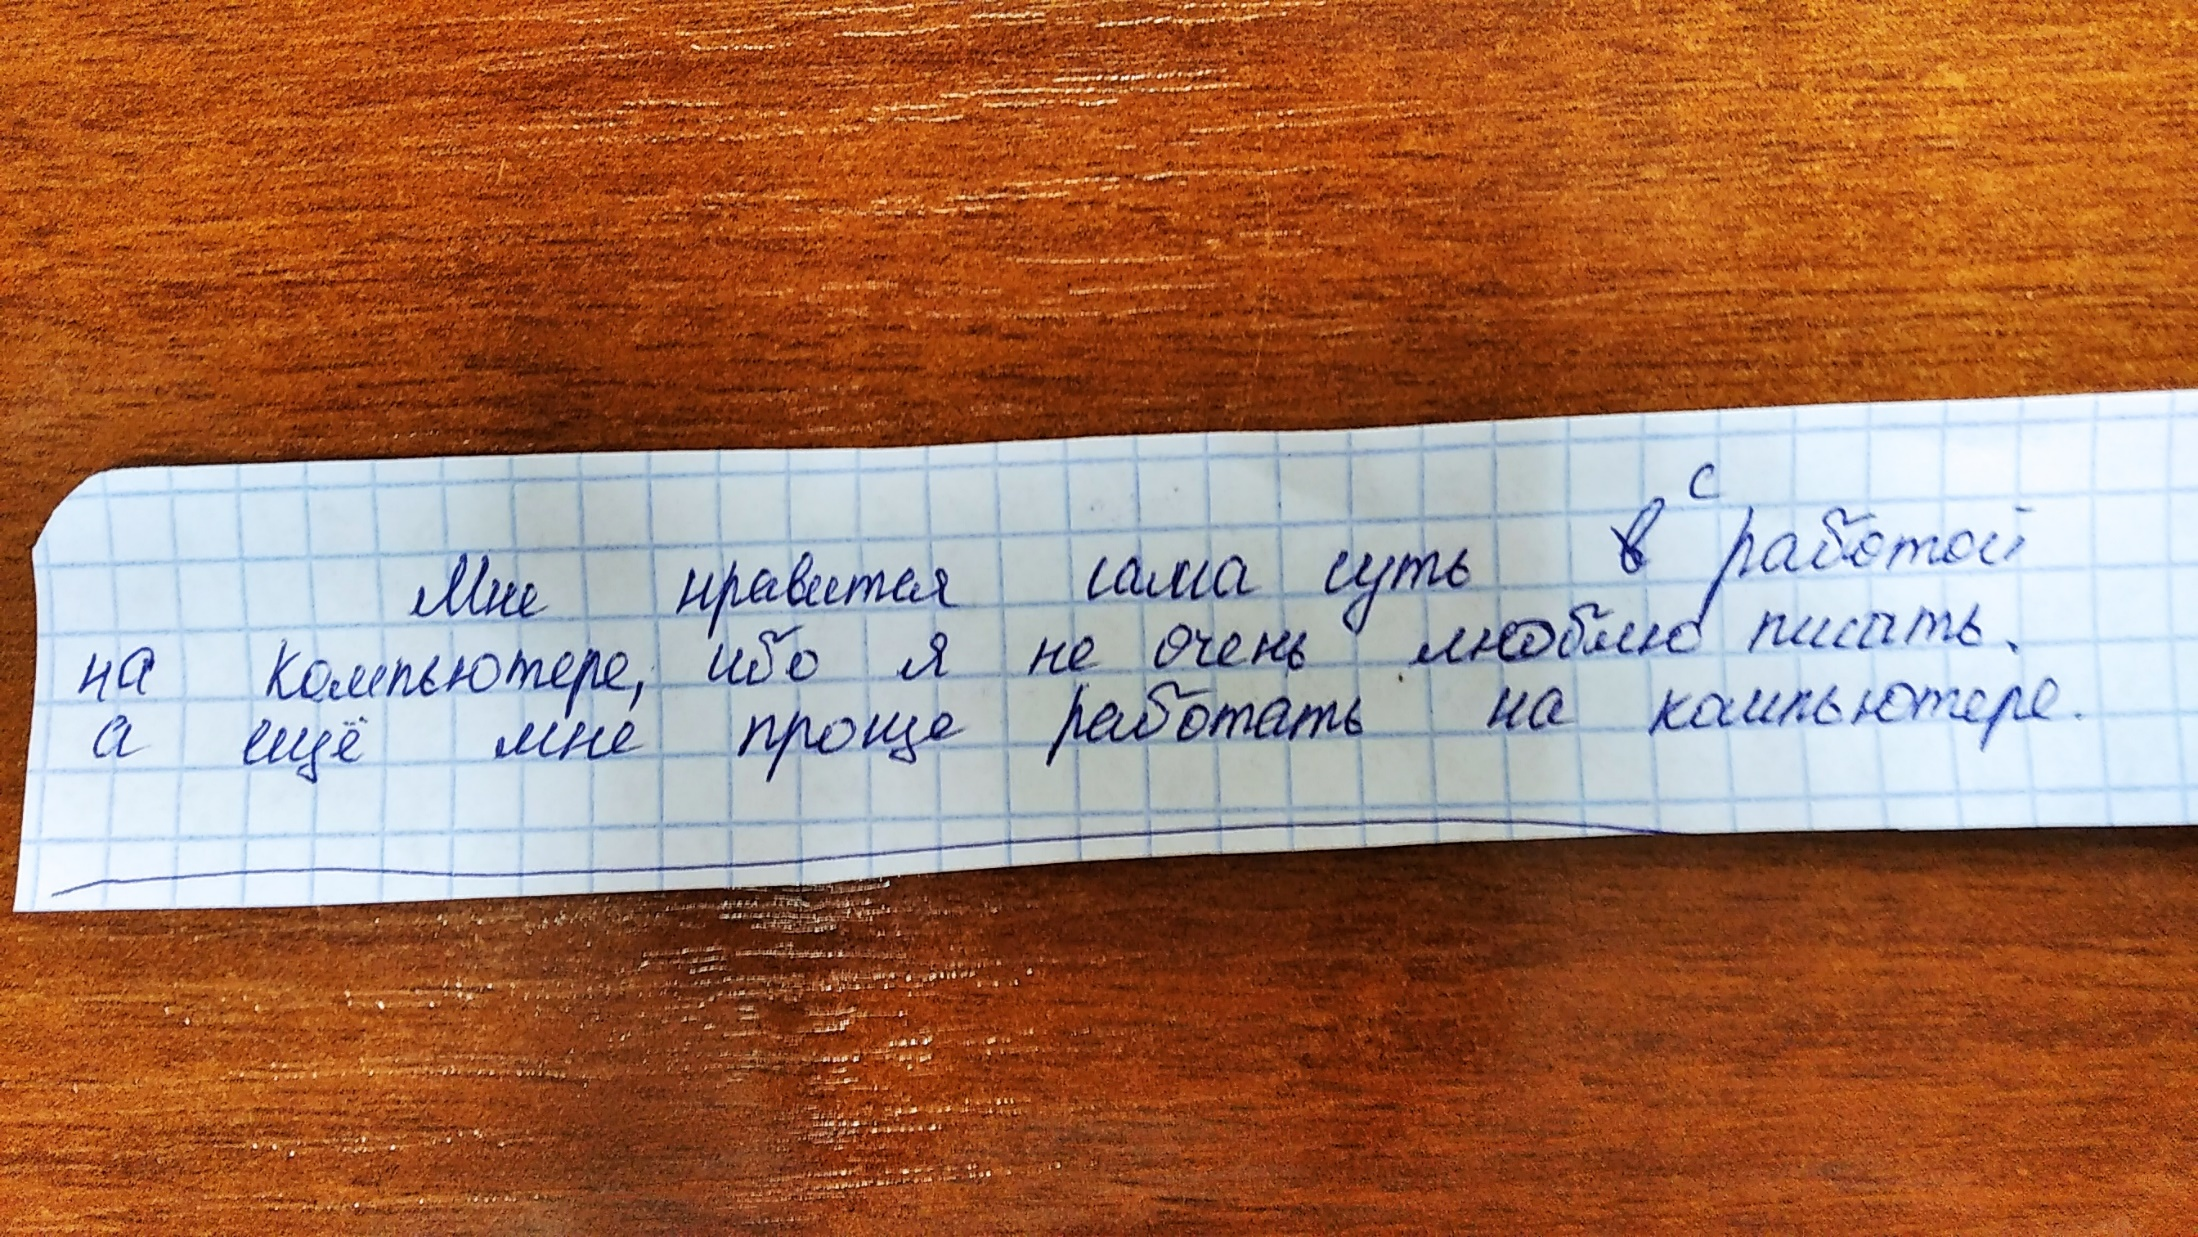 Мне нравится сама суть с работой
на компьютере, ибо я не очень люблю писать.
а ещё мне проще работать на компьютере.